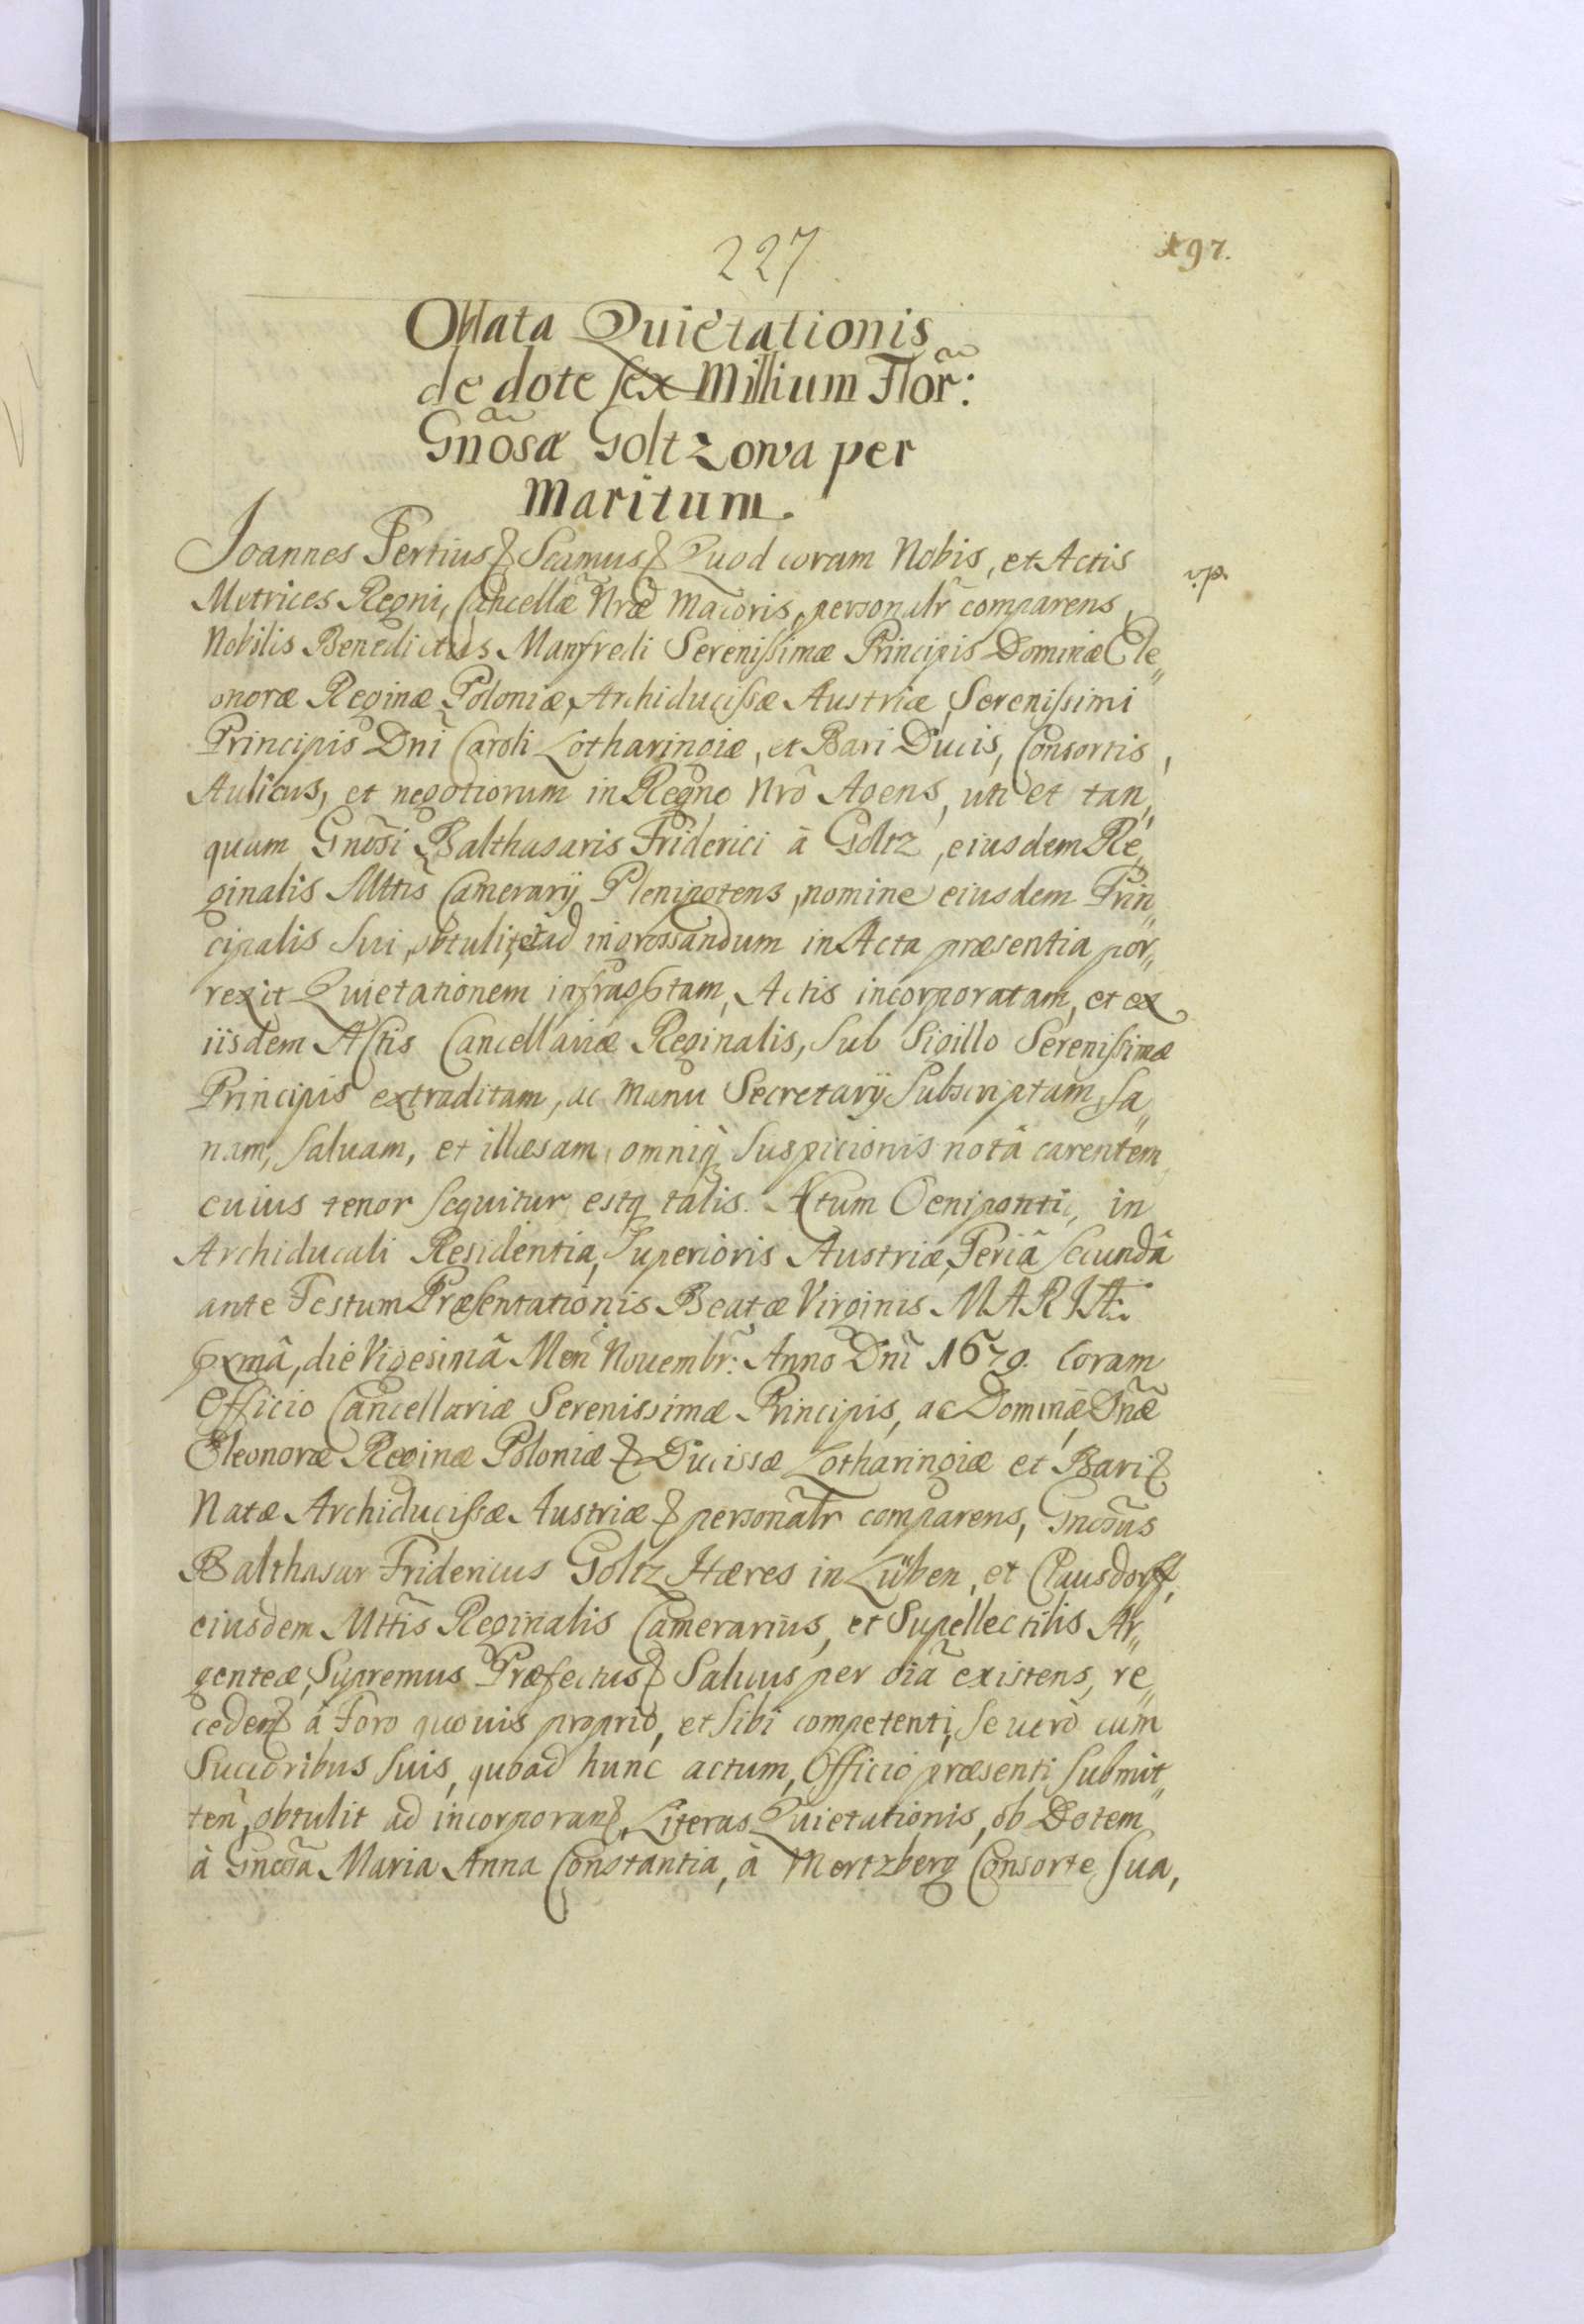 227
197.
Oblata Quietationis
de dote sex Millium Flor̃:
Gñosæ Goltzowa per
Maritum.
Joannes Tertius & Scimus & Quod coram Nobis, et Actis
v.p.
Metrices Regni, Cancellæ Nr̃æ Maioris, personalr̃ comparens
Nobilis Benedictus Manfredi Serenissimæ Principis Dominæ Ele„
onoræ Reginæ Poloniæ, Archiducissæ Austriæ, Serenissimi
Principis Dnĩ Caroli Lotharingiæ, et Bari Ducis, Consortis,
Aulicus, et negotiorum in Regno Nrõ Agens, uti et tan„
quam Gnosĩ Balthasaris Friderici à Goltz, eiusdem Re„
ginalis Mttis̃ Camerarij Plenipotens, nomine eiusdem Prin„
cipalis sui, obtulit, et ad ingrossandum in Acta præsentia por„
rexit Quietationem infrasptam, Actis incorporatam, et ex
iisdem Actis Cancellariæ Reginalis, sub Sigillo Serenissimæ
Principis extraditam, ac manu Secretarij subscriptam, sa„
nam, saluam, et illæsam, omniq̃ suspicionis notâ carentem
cuius tenor sequitur estq talis. Actum Oeniponti, in
Archiducali Residentia, Superioris Austriæ, Feriâ secundâ
ante Festum Præsentationis Beatæ Virginis MARIÆ
pxmâ, die Vigesimâ Men̄ Nouembr̃: Anno Dnĩ 1679. Coram
Officio Cancellariæ Serenissimæ Principis, ac Dominæ Dnæ̃
Eleonoræ Reginæ Poloniæ & Ducissæ Lotharingiæ et Bari &
Natæ Archiducissæ Austriæ & personalr̃ comparens, Gnosũs
Balthasar Fridericus Goltz Hæres in Lüben, et Clausdorff,
eiusdem Mttis̃ Reginalis Camerarius, et Supellectilis Ar„
genteæ, Supremus Præfectus & Saluus per oiã existens, re„
ceden& à Foro quouis proprio, et sibi competenti, se uerò cum
Succoribus suis, quoad hunc actum, Officio præsenti submit„
ten̄, obtulit ad incorporan&, Literas Quietationis, ob Dotem
à Gnosã Maria Anna Constantia, à Mertzberg Consorte sua,